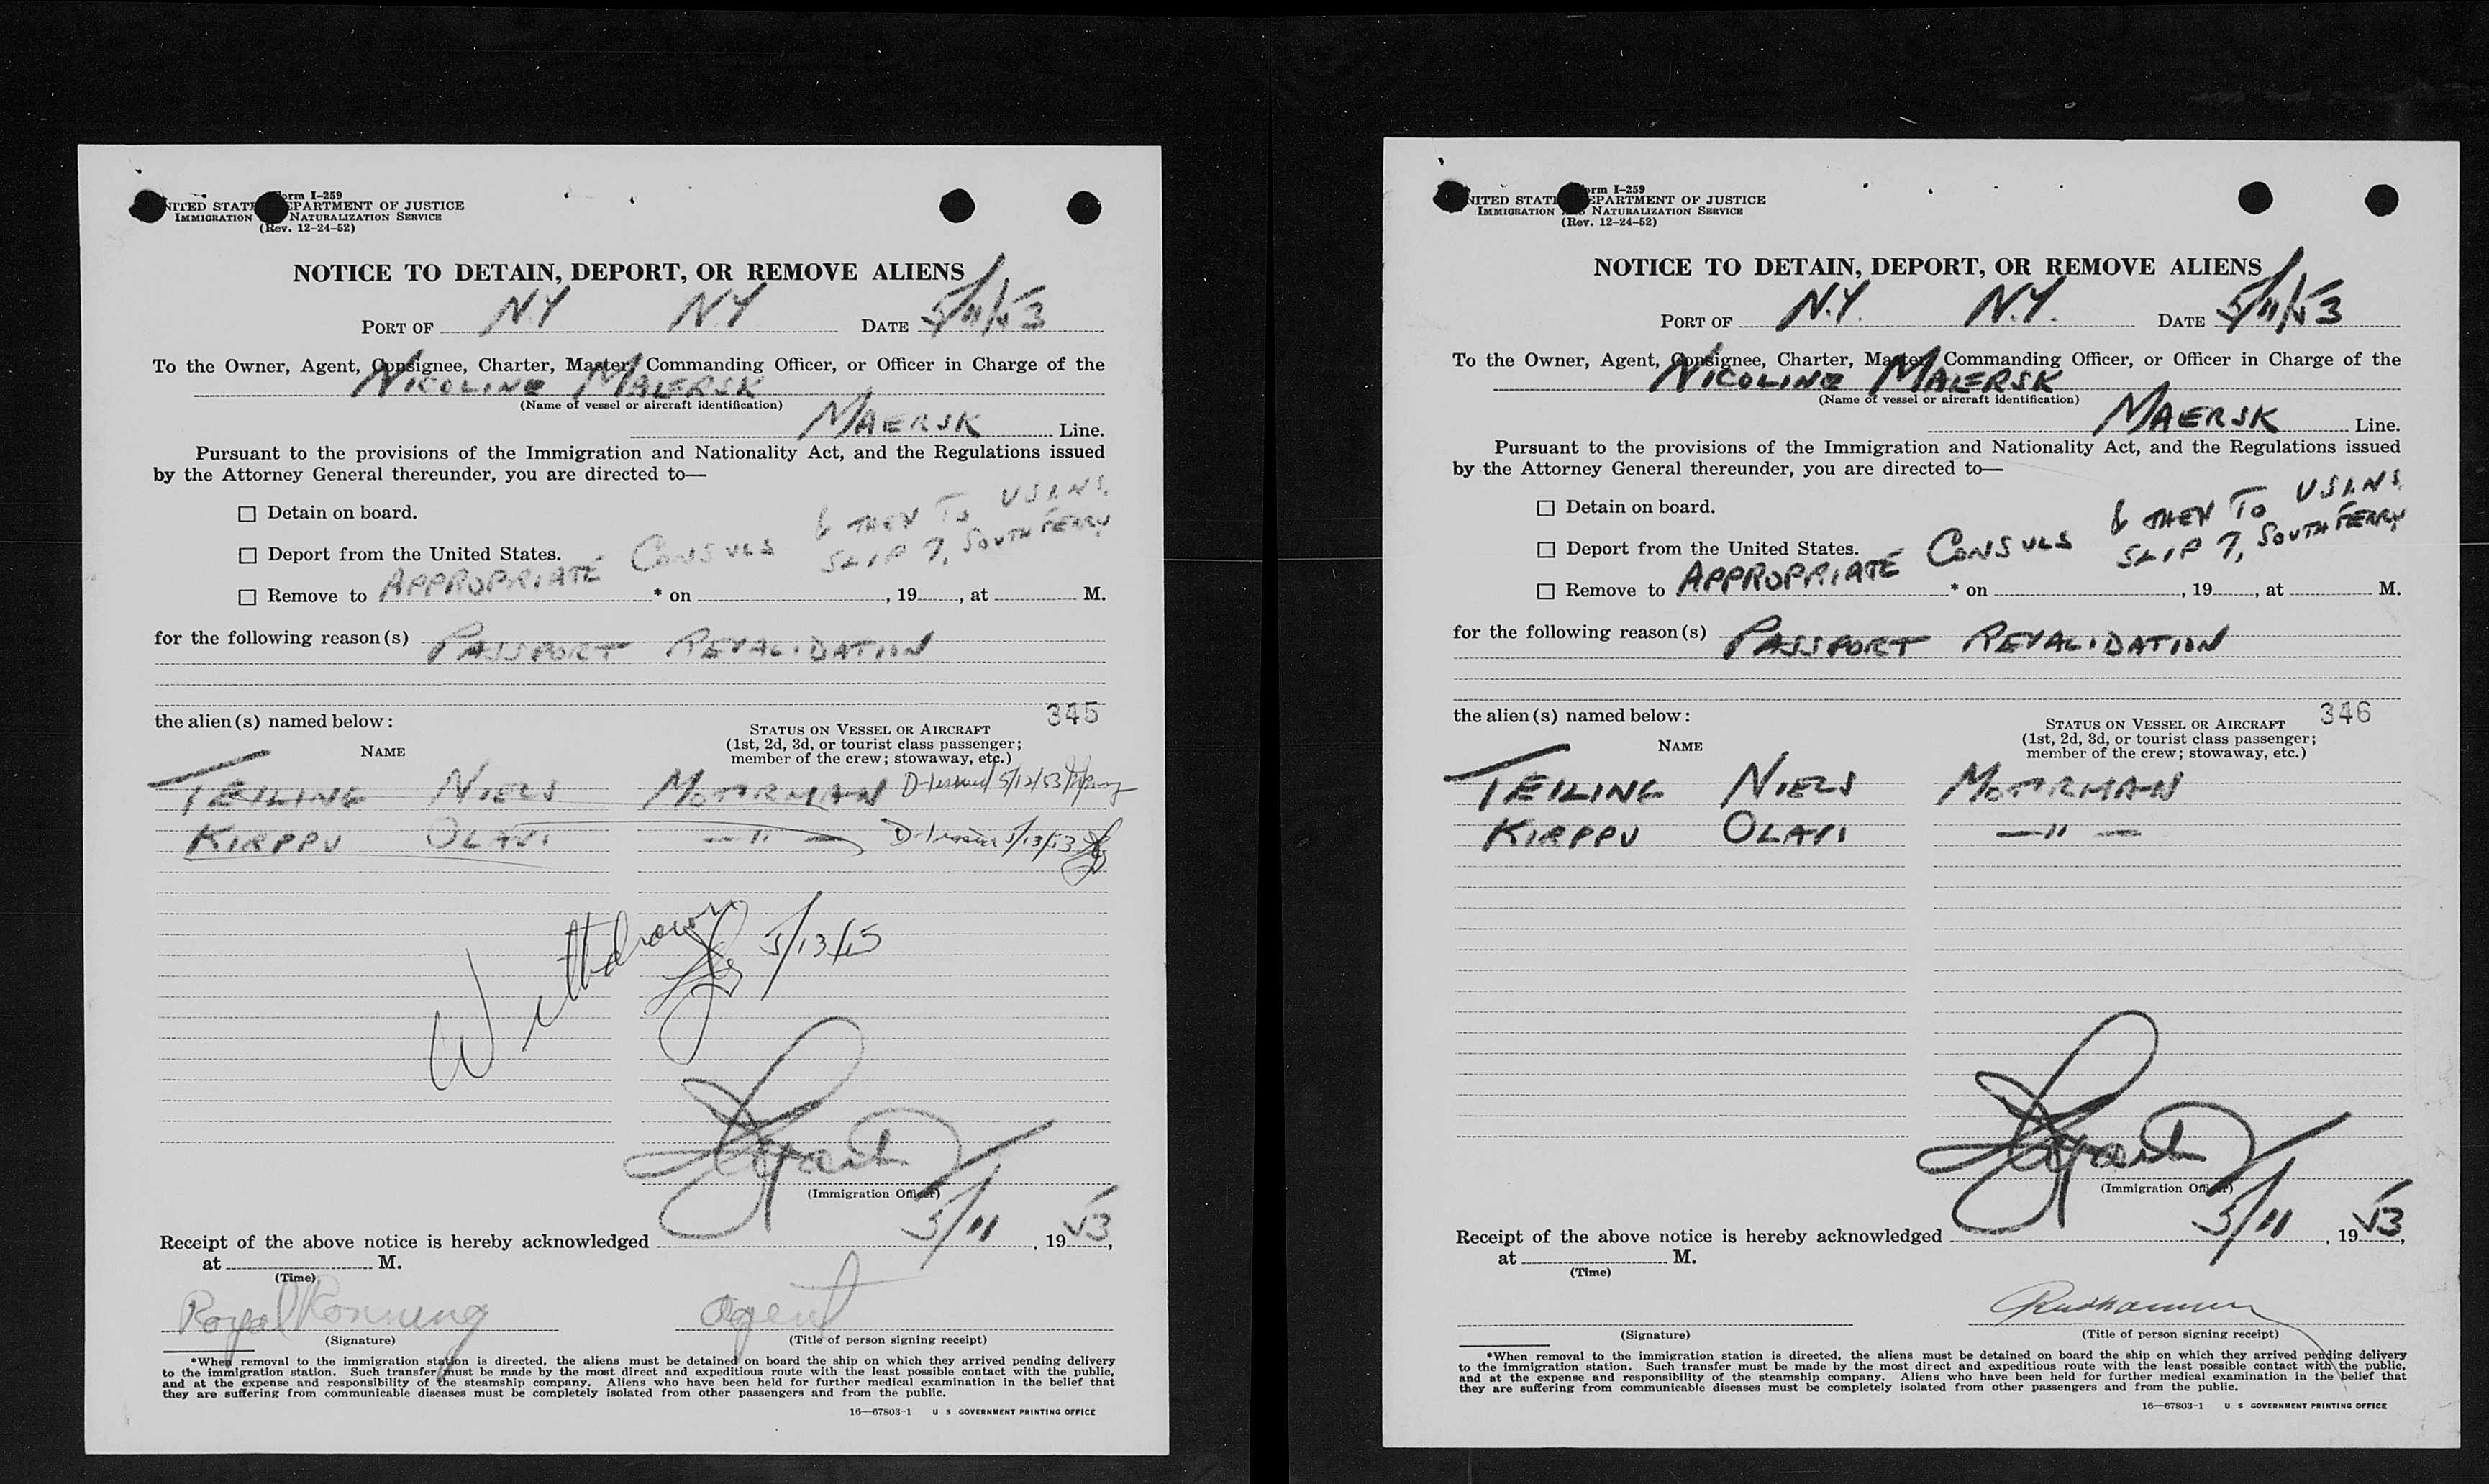 Form I-259
UNITED STATES DEPARTMENT OF JUSTICE
IMMIGRATION NATURALIZATION SERVICE
(Rev. 12-24-52)
NOTICE TO DETAIN, DEPORT, OR REMOVE ALIENS
PORT OF N.Y N.Y. DATE 5/11/53
To the Owner, Agent, Consignee, Charter, Master, Commanding Officer, or Officer in Charge of the
NICOLINE MAERSK
(Name of vessel or aircraft identification)
MAERSK Line.
Pursuant to the provisions of the Immigration and Nationality Act, and the Regulations issued
by the Attorney General thereunder, you are directed to—
☐ Detain on board.
☐ Deport from the United States.
☐ Remove to APPROPRIATE CONSULS & THEN TO USINS, SLIP 7, SOUTH FERRY * on , 19 , at M.
for the following reason(s) PASSPORT REVALIDATION
345
the alien(s) named below:
NAME
STATUS ON VESSEL OR AIRCRAFT
(1st, 2d, 3d, or tourist class passenger;
member of the crew; stowaway, etc.)
TEILING NIELS MOTORMAN D-1 issued 5/12/53
KIRPPU OLAVI —"— D-1 issued 5/13/53
Withdrawn 5/13/53
(Immigration Officer)
Receipt of the above notice is hereby acknowledged 5/11, 1953,
at M.
(Time)
Royal Ronning agent
(Signature) (Title of person signing receipt)
*When removal to the immigration station is directed, the aliens must be detained on board the ship on which they arrived pending delivery
to the immigration station. Such transfer must be made by the most direct and expeditious route with the least possible contact with the public,
and at the expense and responsibility of the steamship company. Aliens who have been held for further medical examination in the belief that
they are suffering from communicable diseases must be completely isolated from other passengers and from the public.
16—67803-1 U S GOVERNMENT PRINTING OFFICE
Form I-259
UNITED STATES DEPARTMENT OF JUSTICE
IMMIGRATION AND NATURALIZATION SERVICE
(Rev. 12-24-52)
NOTICE TO DETAIN, DEPORT, OR REMOVE ALIENS
PORT OF N.Y. N.Y. DATE 5/11/53
To the Owner, Agent, Consignee, Charter, Master, Commanding Officer, or Officer in Charge of the
NICOLINE MAERSK
(Name of vessel or aircraft identification)
MAERSK Line.
Pursuant to the provisions of the Immigration and Nationality Act, and the Regulations issued
by the Attorney General thereunder, you are directed to—
☐ Detain on board.
☐ Deport from the United States.
☐ Remove to APPROPRIATE CONSULS & THEN TO USINS, SLIP 7, SOUTH FERRY * on , 19 , at M.
for the following reason(s) PASSPORT REVALIDATION
346
the alien(s) named below:
NAME
STATUS ON VESSEL OR AIRCRAFT
(1st, 2d, 3d, or tourist class passenger;
member of the crew; stowaway, etc.)
TEILING NIELS MOTORMAN
KIRPPU OLAVI —"—
(Immigration Officer)
Receipt of the above notice is hereby acknowledged 5/11, 1953,
at M.
(Time)
(Signature) (Title of person signing receipt)
*When removal to the immigration station is directed, the aliens must be detained on board the ship on which they arrived pending delivery
to the immigration station. Such transfer must be made by the most direct and expeditious route with the least possible contact with the public,
and at the expense and responsibility of the steamship company. Aliens who have been held for further medical examination in the belief that
they are suffering from communicable diseases must be completely isolated from other passengers and from the public.
16—67803-1 U S GOVERNMENT PRINTING OFFICE